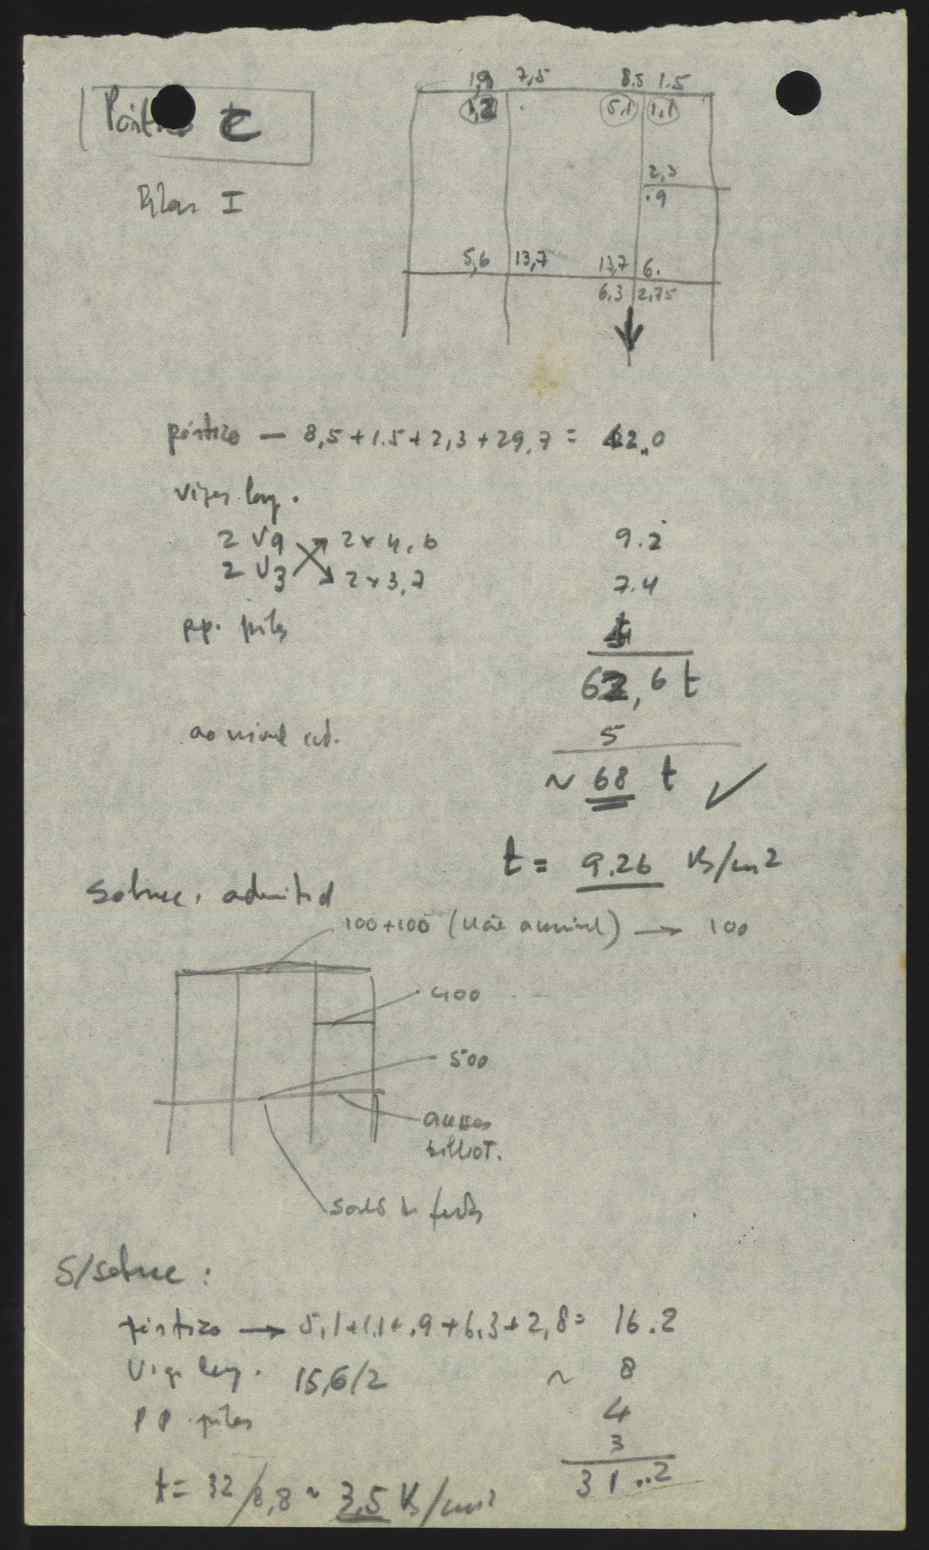 Pórtico C
Pilar I
1,9 7,5 8.5 1.5
1,2 5,1 1,1
2,3
.9
5,6 13,7 13,7 6.
6,3 2,75
pórtico — 8,5+1.5+2,3+29,7 = 42,0
vigas long.
2 V9 2x4,6 9.2
2 V3 2x3,7 7.4
pp. pilar 4
62,6 t
ao nivel 5
~ 68 t ✓
t = 9.26 Kg/cm2
Sobrec. admitid
100+100 (não acessivel) → 100
400
500
salão de festas
S/sobrec:
pórtico → 5,1+1.1+.9+6,3+2,8= 16.2
Vig. long. 15,6/2 ~ 8
PP. pilar 4
3
31.2
t = 32/8,8 ~ 3,5 Kg/cm2